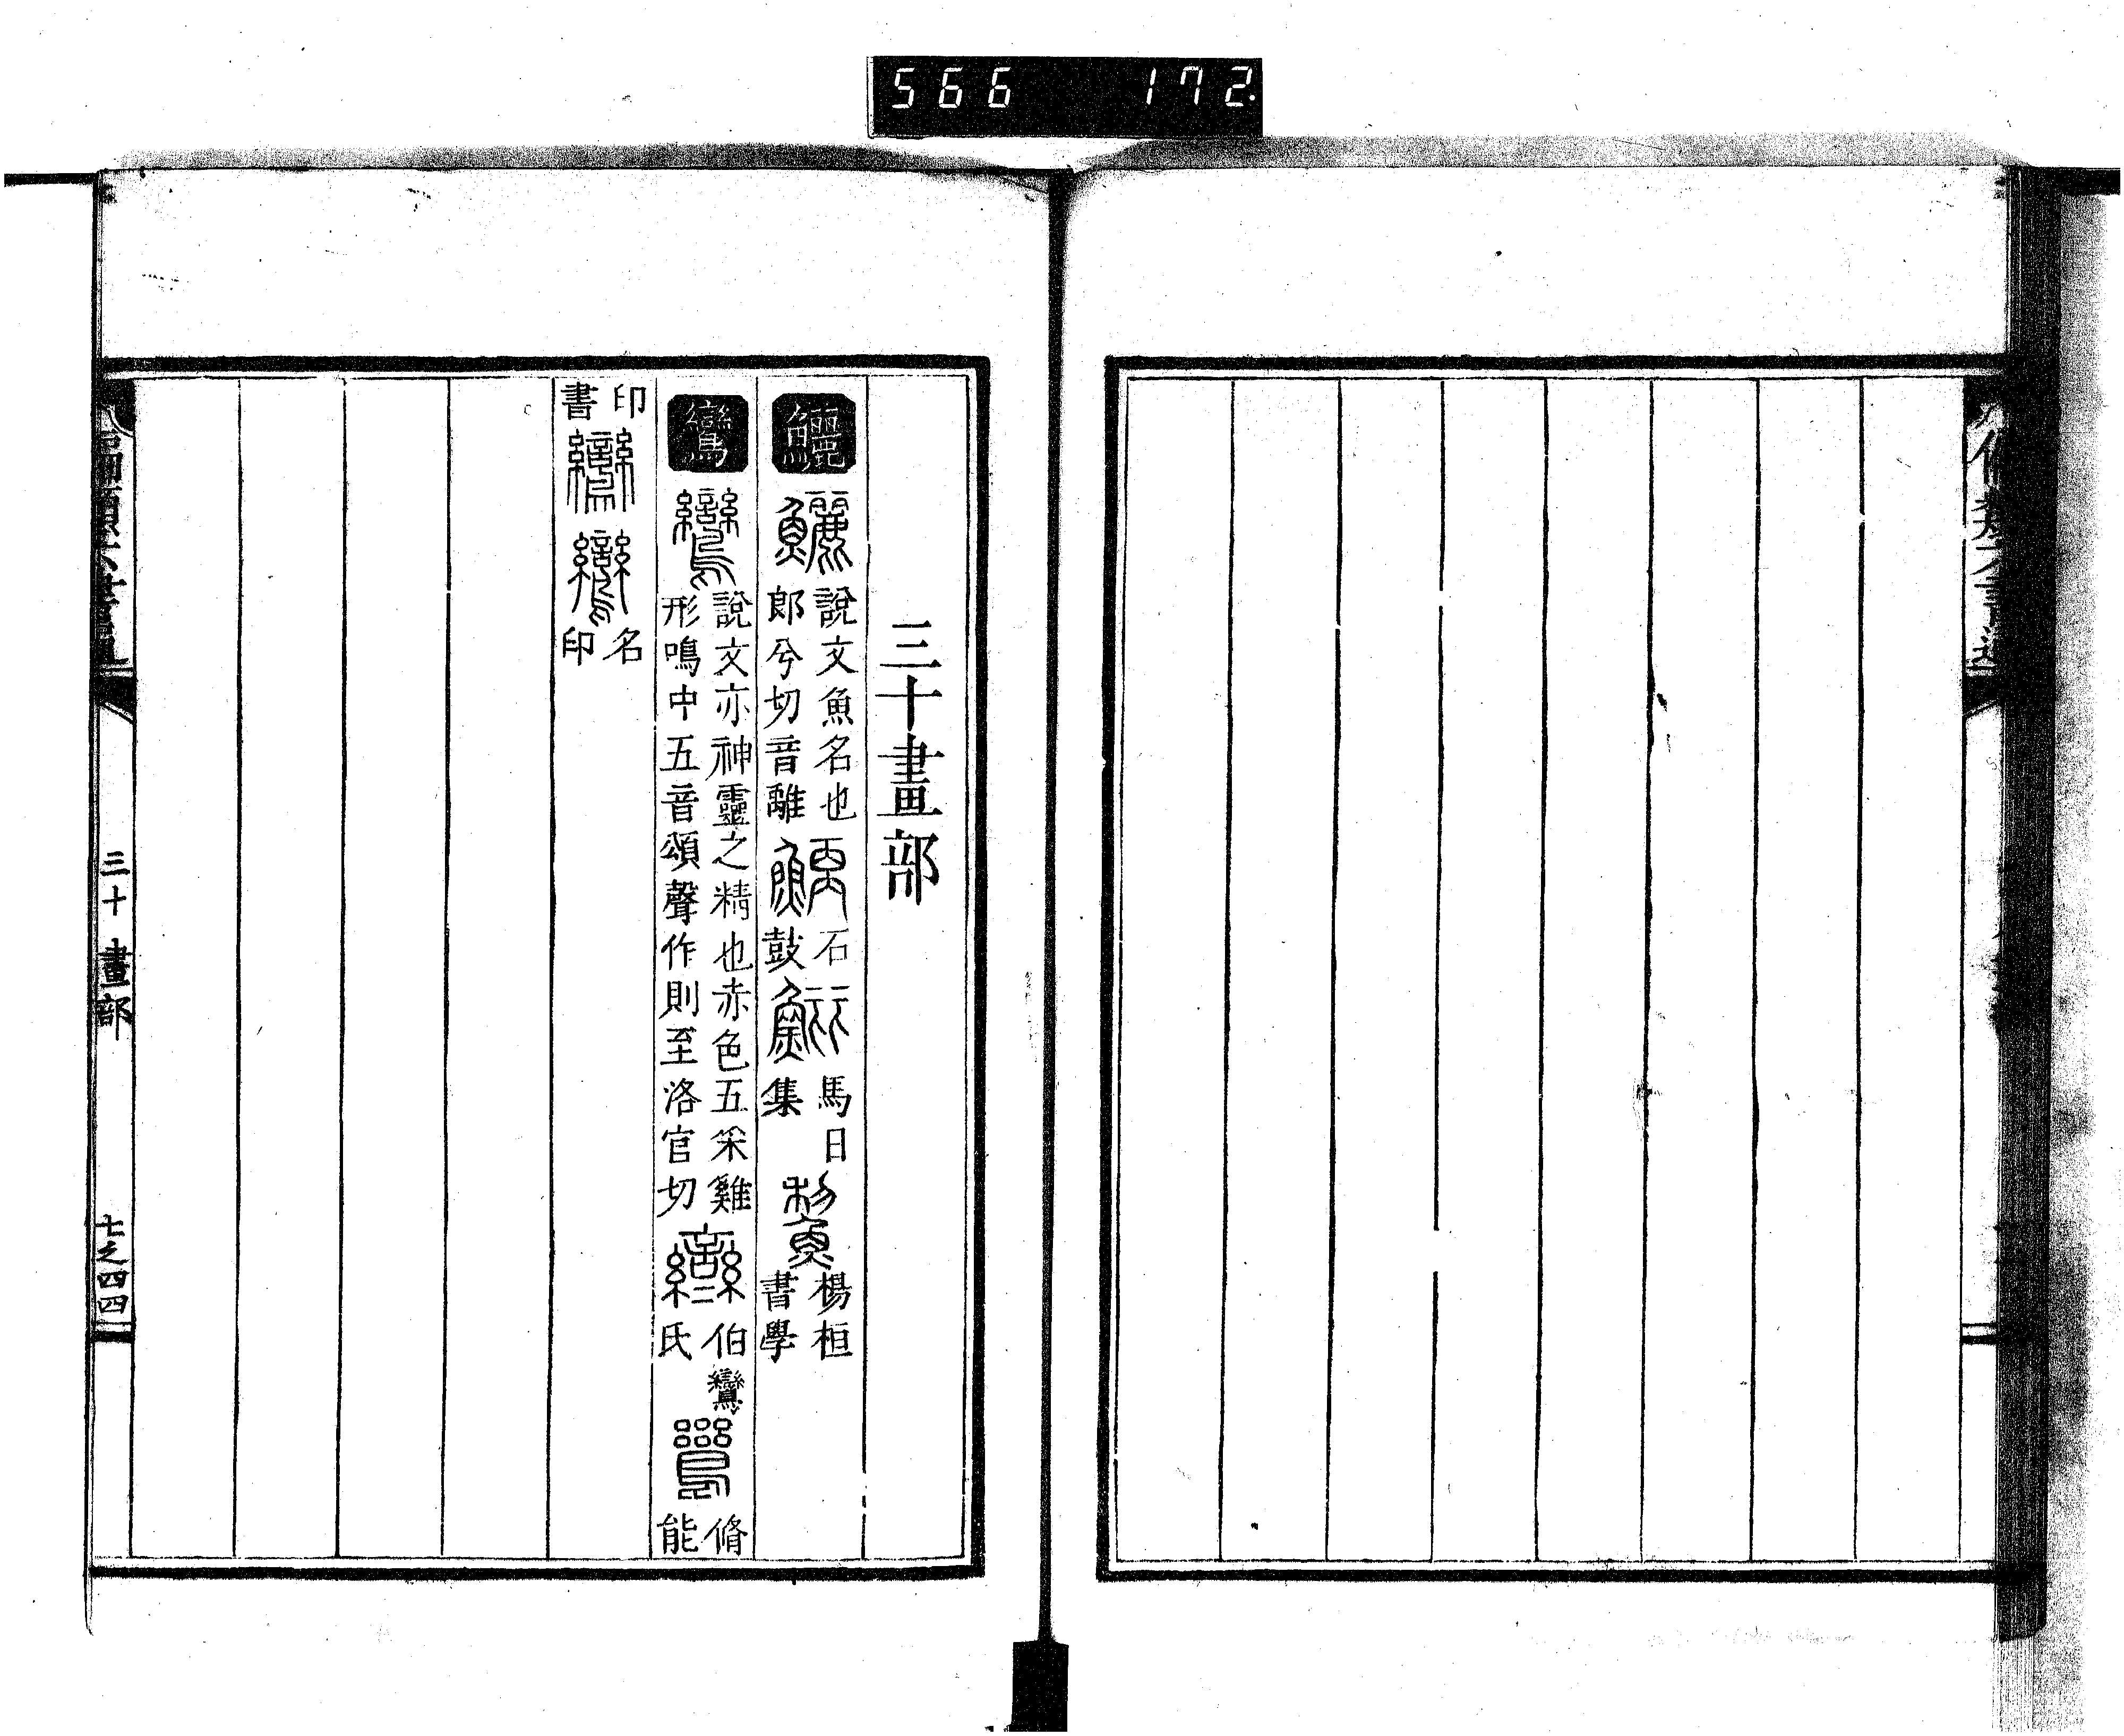 566 172
三十畫部
鱺 說文魚名也
郎兮切音離
石
鼓
馬日
集
楊桓
書學
鸞 說文亦神靈之精也赤色五采雞
形鳴中五音頌聲作則至洛官切
伯
氏
脩
能
印
書
名
印
三十畫部
七之四四